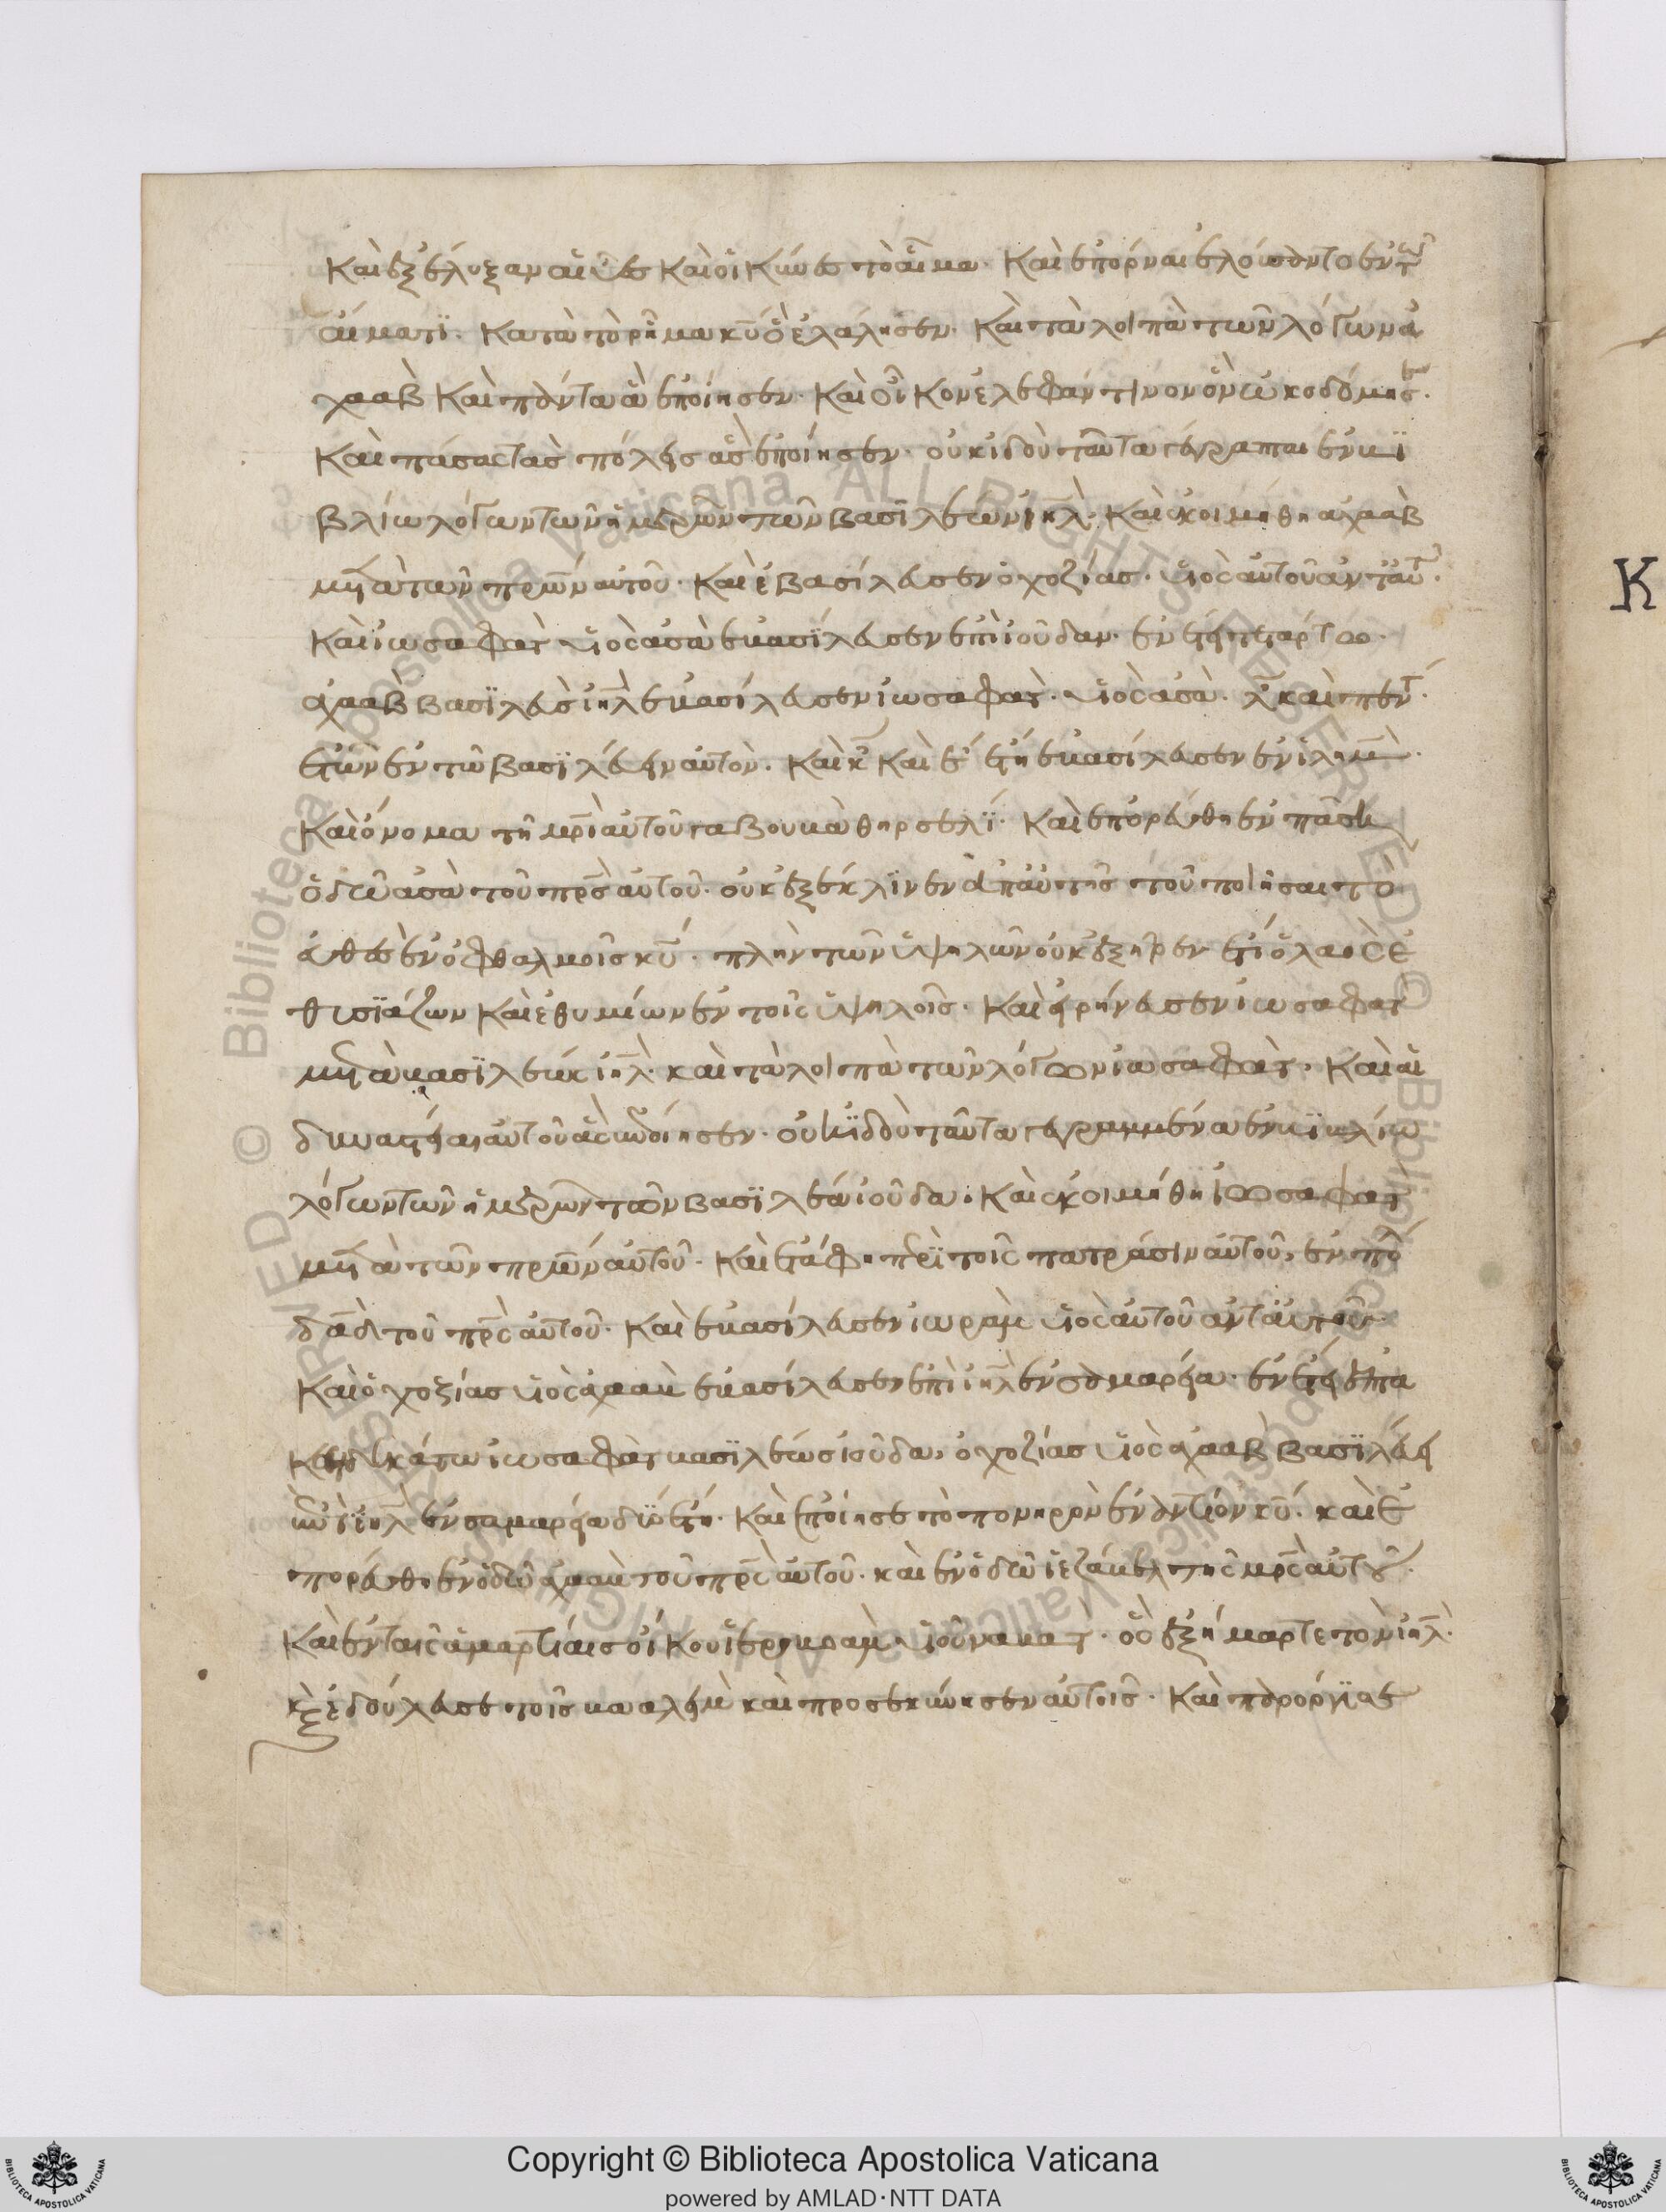 Καὶ ἐξέλυξαν αἱ ὕες καὶ οἱ κύνες τὸ αἷμα. Καὶ αἱ πόρναι ἐλούσαντο ἐν τῷ
αἵματι. Κατὰ τὸ ῥῆμα κυ ὃ ἐλάλησεν. Καὶ τὰ λοιπὰ τῶν λόγων ἀ
χαὰβ Καὶ πάντα ἃ ἐποίησεν. Καὶ οἶκον ἐλεφάντινον ὃν ὠκοδόμησεν.
Καὶ πάσας τὰς πόλεις ἃς ἐποίησεν. οὐκ ἰδοὺ ταῦτα γέγραπται ἐν βι
βλίω λόγων τῶν ἡμερῶν τῶν βασιλέων ιηλ. Καὶ ἐκοιμήθη ἀχαὰβ
μετὰ τῶν πρων αὐτοῦ. Καὶ ἐβασίλευσεν ὀχοζίας. υἱὸς αὐτοῦ ἀντ αὐτοῦ.
Καὶ ἰωσαφὰτ υἱὸς ἀσὰ ἐβασίλευσεν ἐπὶ ἰούδαν. ἐν ἔτει τετάρτω.
ἀχαὰβ βασιλεὺς ιηλ ἐβασίλευσεν ἰωσαφὰτ. υἱὸς ἀσὰ. λ καὶ πέντε.
ἐτῶν ἐν τῶ βασιλεύειν αὐτὸν. Καὶ κ καὶ ε ἔτη ἐβασίλευσεν ἐν ιλημ.
Καὶ ὄνομα τῆ μρι αὐτοῦ γαβουβὰ θηρσελί. Καὶ ἐπορεύθη ἐν πάση
ὁδῶ ἀσὰ τοῦ πρς αὐτοῦ. οὐκ ἐξέκλινεν ἀπ αὐτῆς τοῦ ποιῆσαι τὸ
εὐθὲς ἐν ὀφθαλμοῖς κυ. πλὴν τῶν ὑψηλῶν οὐκ ἐξῆρεν ἔτι ὁ λαὸς ἐ
θυσίαζων Καὶ ἐθυμίων ἐν τοῖς ὑψηλοῖς. Καὶ εἰρήνευσεν ἰωσαφὰτ
μετὰ βασιλέως ιηλ. καὶ τὰ λοιπὰ τῶν λόγων ἰωσαφὰτ. Καὶ αἱ
δυναστεῖαι αὐτοῦ ἃς ἐποίησεν. οὐκ ἰδοὺ ταῦτα γεγραμμένα ἐν βιβλίω
λόγων τῶν ἡμερῶν τῶν βασιλέων ἰούδα. Καὶ ἐκοιμήθη ἰωσαφὰτ
μετὰ τῶν πρων αὐτοῦ. Καὶ ἐτάφη περὶ τοῖς πατράσιν αὐτοῦ, ἐν πόλει
δαδ τοῦ πρς αὐτοῦ. Καὶ ἐβασίλευσεν ἰωρὰμ υἱὸς αὐτοῦ ἀντ αὐτοῦ
Καὶ ὀχοζίας υἱὸς ἀχαὰβ ἐβασίλευσεν ἐπὶ ιηλ ἐν σαμαρεία. ἐν ἔτει ἑπτα
καιδεκάτω ἰωσαφὰτ βασιλέως ἰούδα, ὀχοζίας υἱὸς ἀχαὰβ βασιλεύει
ἐπὶ ιηλ ἐν σαμαρεία δύο ἔτη. Καὶ ἐποίησε τὸ πονηρὸν ἐναντίον κυ. καὶ ἐ
πορεύθη ἐν ὁδῶ ἀχαὰβ τοῦ πρς αὐτοῦ. καὶ ἐν ὁδῶ ἰεζάβελ τῆς μρς αὐτοῦ.
Καὶ ἐν ταῖς ἁμαρτίαις οἴκου ἱεροβοὰμ υἱοῦ ναβὰτ. ὃς ἐξήμαρτε τὸν ιηλ.
καὶ ἐδούλευσε τοῖς βααλεὶμ καὶ προσεκύνησεν αὐτοῖς. Καὶ παρόργισε
Κ
Copyright © Biblioteca Apostolica Vaticana
powered by AMLAD·NTT DATA